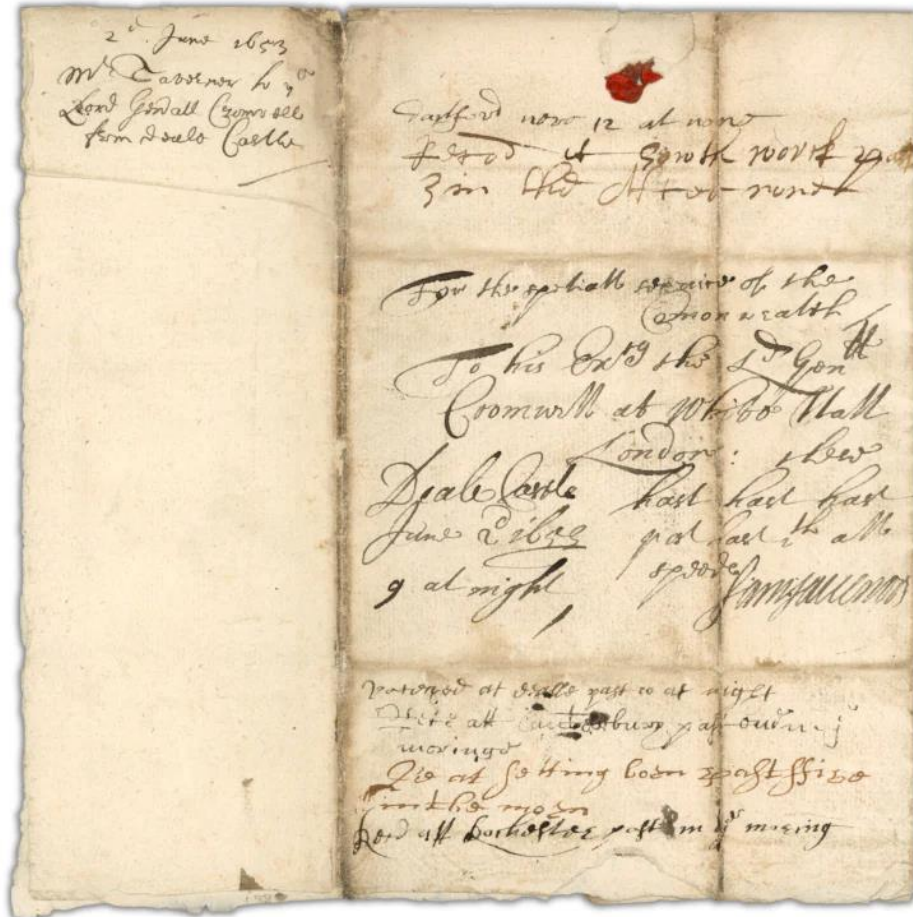 2d June 1653
Mr Taverner to ye
Lord Genall Cromwell
from deale Castle
dartford nere 12 at none
at Southwork past
3 in the Afternone
For the spetiall service of the
Comonwealth
To his Excy the Ld Genll
Cromwell at White Hall
London: these
Deale Castle hast hast hast
June 2d 1653 post hast th all
9 at night speede Sam Tavernor
at dealle past 10 at night
att Canterbury past
morninge
Re at Setting born past ffive
in the morn
Recd att Rochester past in ye morning